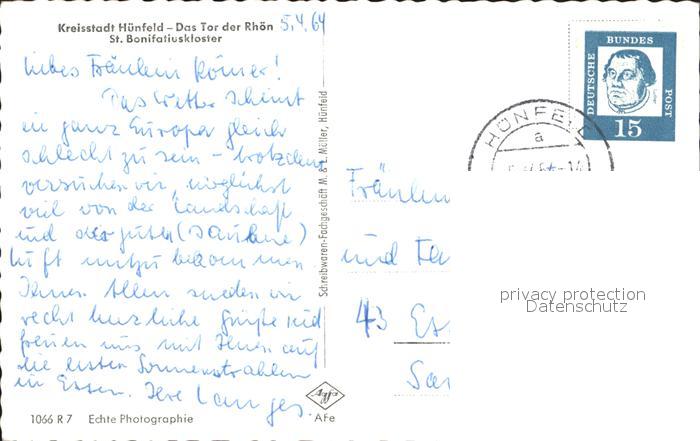 Kreisstadt Hünfeld – Das Tor der Rhön
St. Bonifatiuskloster
5.4.64
Liebes Fräulein Römer!
Das Wetter scheint
in ganz Europa gleich
schlecht zu sein – trotzdem
versuchen wir, möglichst
viel von der Landschaft
und der guten (sauberen)
Luft mitzubekommen
Ihnen Allen senden wir
recht herzliche Grüße und
freuen uns mit Ihnen auf
die ersten Sonnenstrahlen
in Essen. Ihre Langes.
1066 R 7 Echte Photographie
Schreibwaren-Fachgeschäft M. & E. Müller, Hünfeld
Agfa
AFe
DEUTSCHE
BUNDES
POST
15
HÜNFELD
a
Fräulein
und Fa
43 Ess
privacy protection
Datenschutz